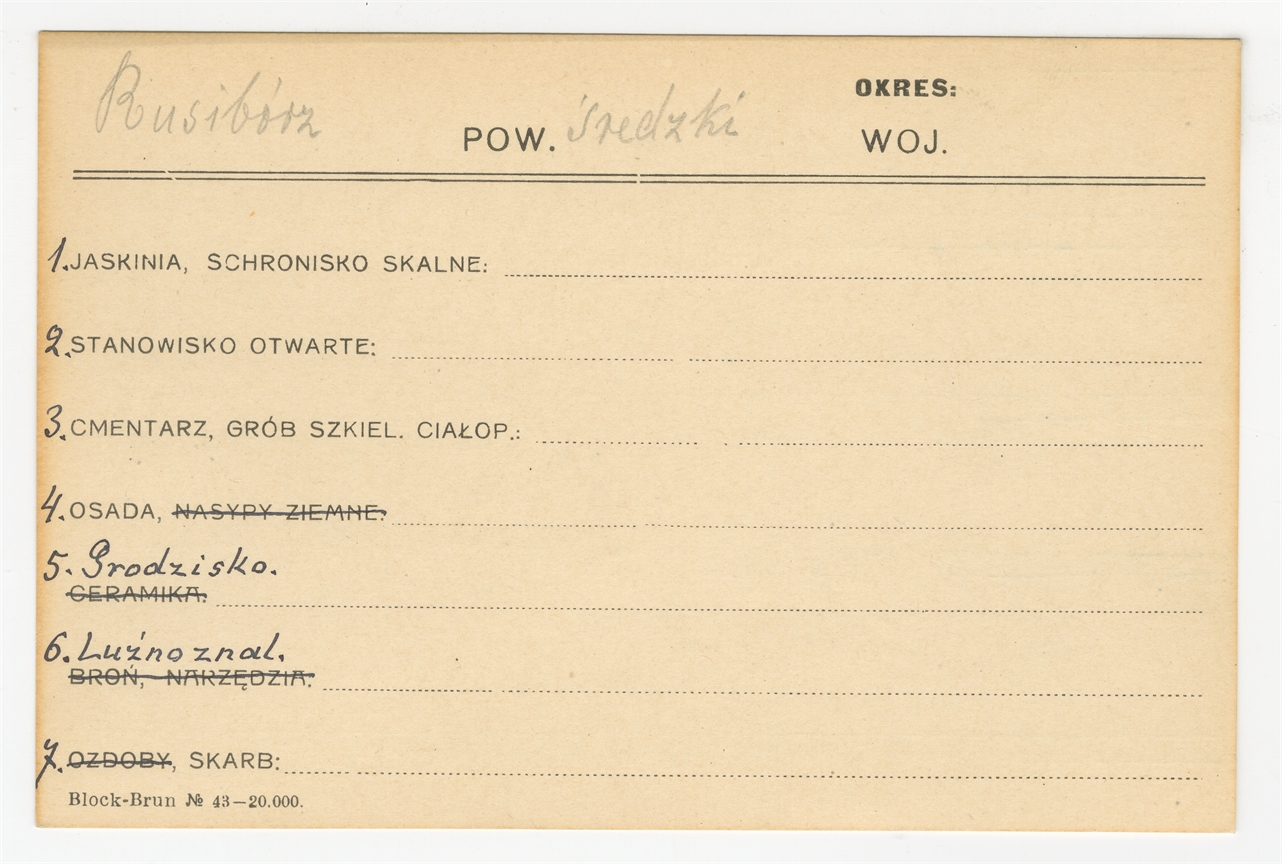 Rusibórz
OKRES:
POW. średzki WOJ.
1. JASKINIA, SCHRONISKO SKALNE:
2. STANOWISKO OTWARTE:
3. CMENTARZ, GRÓB SZKIEL. CIAŁOP.:
4. OSADA, NASYPY ZIEMNE:
5. Grodzisko.
CERAMIKA:
6. Luźno znal.
BROŃ, NARZĘDZIA:
7. OZDOBY, SKARB:
Block-Brun № 43—20.000.